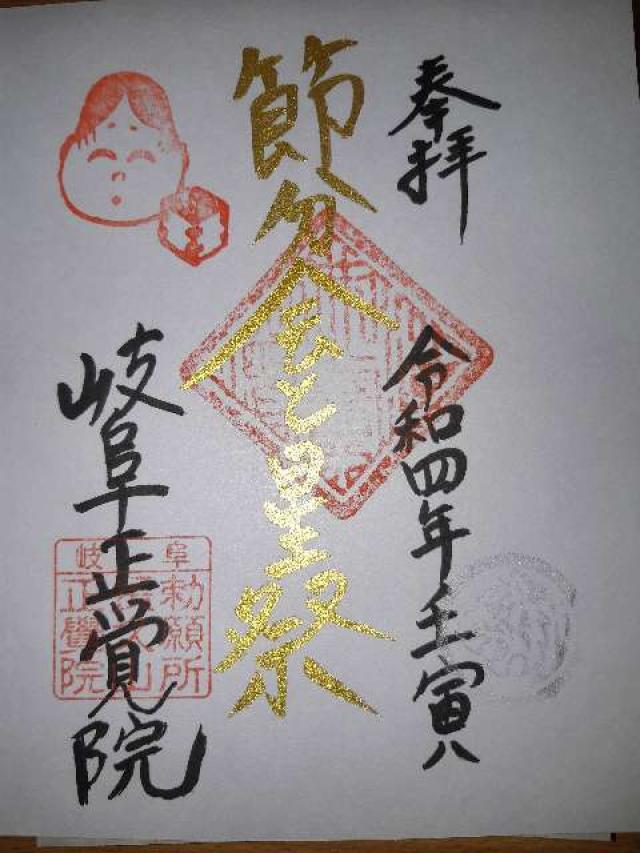 奉拝
令和四年壬寅八
節分会と星祭
岐阜正覚院
岐阜
勅願所
正覺院